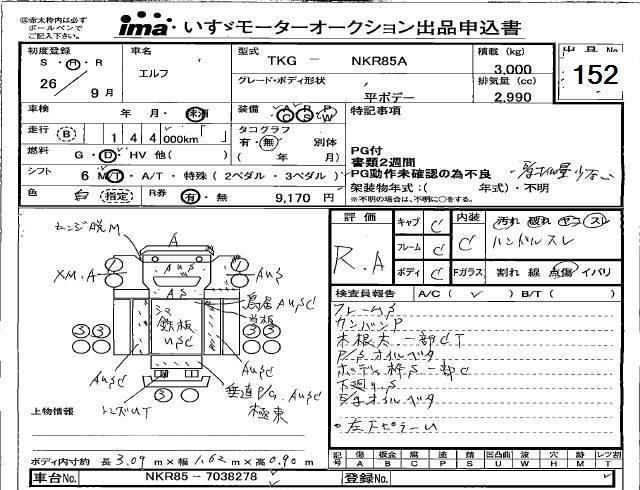 ㊟赤太枠内は必ず
ボールペンで
ご記入下さい。
ima いすゞモーターオークション出品申込書
初度登録
S・H・R
26
9月
車名
エルフ
型式
TKG － NKR85A
グレード・ボディ形状
平ボデー
積載 (kg)
3,000
排気量 (cc)
2,990
出品No
152
車検
年 月・未消
装備
A C P S P W
特記事項
走行 (B)
1 4 4 ,000km
タコグラフ
有・無 別体
( 年 月)
PG付
書類2週間
燃料
G・D・HV 他( )
シフト
6 MT・A/T・特殊(2ペダル・3ペダル)
PG動作未確認の為不良
架装物年式:( 年式)・不明
※不明の場合は、不明に○をする。
色
白 (指定)
R券
有・無
9,170 円
評価
R.A
キャブ C
フレーム C
ボディ C
内装
C
汚れ 破れ ヤコゲ スレ
ハンドルスレ
Fガラス
割れ 線 点傷 イバリ
検査員報告
A/C( ✓ ) B/T( )
フレームS
カンバンP
木根太一部CT
P/Sオイルベタ
ボディ枠S一部C
下廻りS
左下ピラーU
センジ脱M
A
AuS
XM.A
AuS
AS
鳥居AuSC
鉄板
USC
AuSC
AuSC
垂直P/G AuSC
極東
上物情報
ボディ内寸約 長 3.09 m×幅 1.62 m×高 0.90 m
記号 傷 A 板金 B 腐 C 塗 P 錆 S 凹凸曲 U 波 W 穴 H 跡 M レツ割 T
車台No.
NKR85－7038278
登録No.